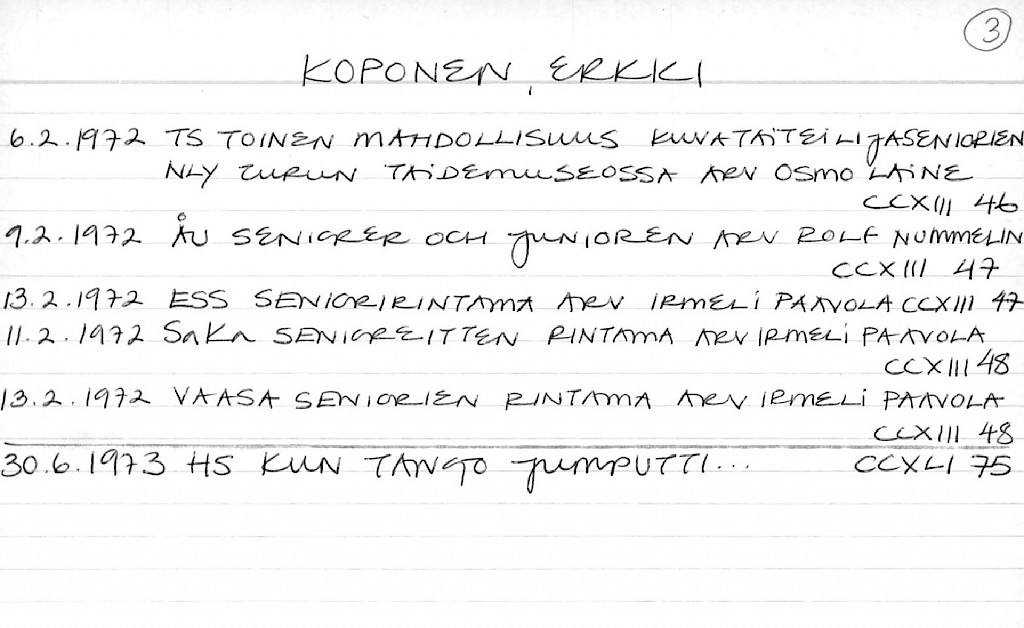 3
KOPONEN, ERKKI
6.2.1972 TS TOINEN MAHDOLLISUUS KUVATAITEILIJASENIORIEN
NLY TURUN TAIDEMUSEOSSA ARV OSMO LAINE
CCXIII 46
9.2.1972 ÅU SENIORER OCH JUNIOREN ARV ROLF NUMMELIN
CCXIII 47
13.2.1972 ESS SENIORIRINTAMA ARV IRMELI PAAVOLA CCXIII 47
11.2.1972 SaKa SENIOREITTEN RINTAMA ARV IRMELI PAAVOLA
CCXIII 48
13.2.1972 VAASA SENIORIEN RINTAMA ARV IRMELI PAAVOLA
CCXIII 48
30.6.1973 HS KUN TANGO JUMPUTTI... CCXLI 75